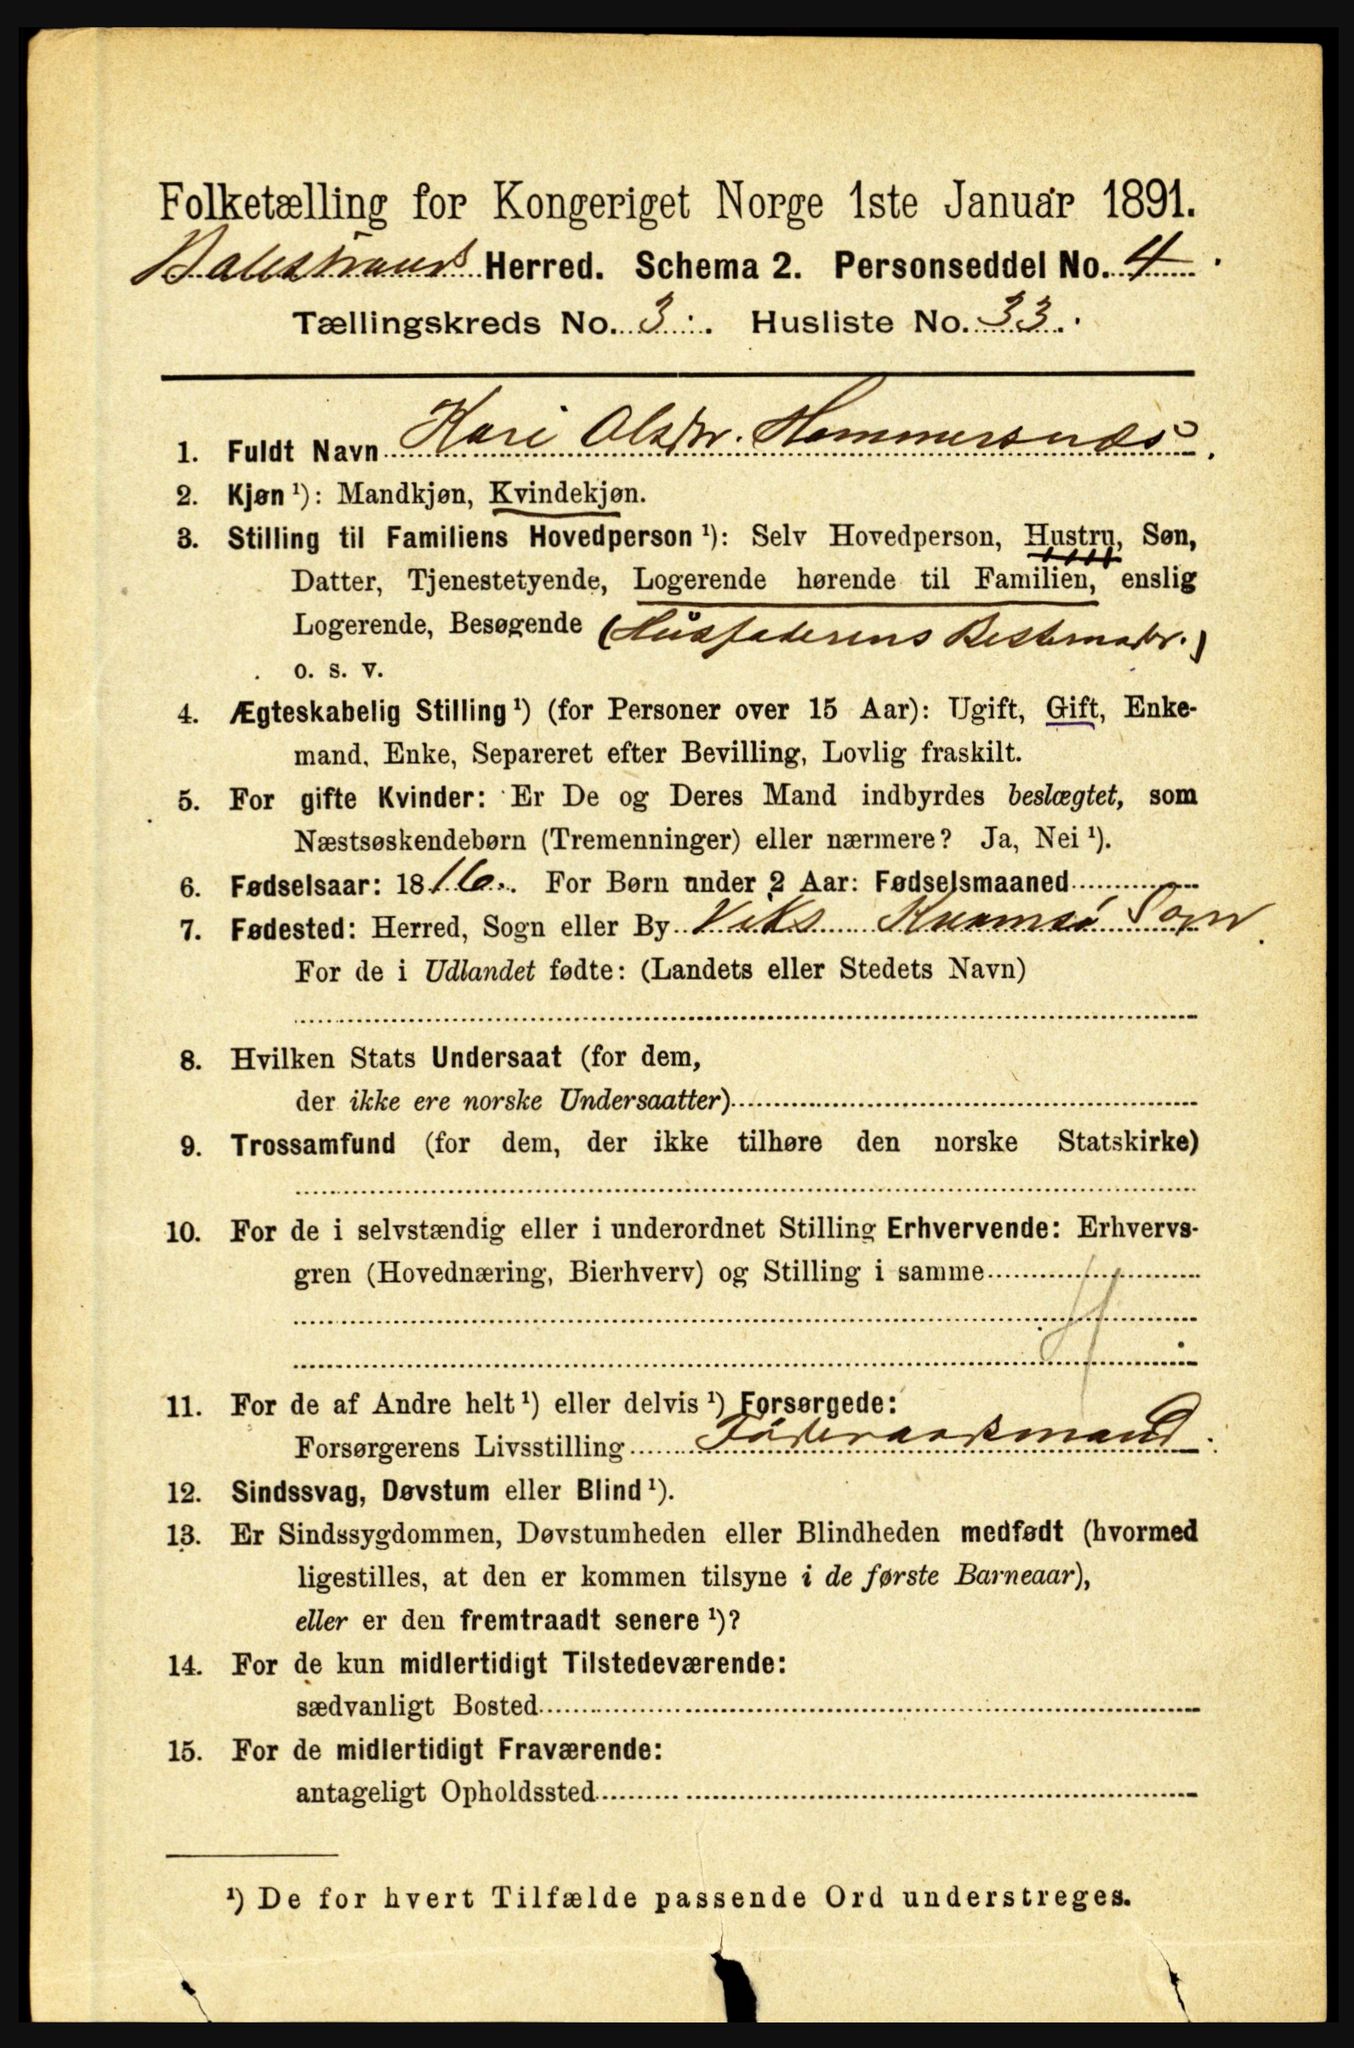 Folketælling for Kongeriget Norge 1ste Januar 1891.
Balestrands Herred. Schema 2. Personseddel No. 4.
Tællingskreds No. 3. Husliste No. 33.
1. Fuldt Navn Kari Olsdtr. Hammersnæs.
2. Kjøn ¹): Mandkjøn, Kvindekjøn.
3. Stilling til Familiens Hovedperson ¹): Selv Hovedperson, Hustru, Søn,
Datter, Tjenestetyende, Logerende hørende til Familien, enslig
Logerende, Besøgende (Husfaderens Bestemoder.)
o. s. v.
4. Ægteskabelig Stilling ¹) (for Personer over 15 Aar): Ugift, Gift, Enke-
mand, Enke, Separeret efter Bevilling, Lovlig fraskilt.
5. For gifte Kvinder: Er De og Deres Mand indbyrdes beslægtet, som
Næstsøskendebørn (Tremenninger) eller nærmere? Ja, Nei ¹).
6. Fødselsaar: 1816. For Børn under 2 Aar: Fødselsmaaned
7. Fødested: Herred, Sogn eller By Viks Kvamsø Sogn.
For de i Udlandet fødte: (Landets eller Stedets Navn)
8. Hvilken Stats Undersaat (for dem,
der ikke ere norske Undersaatter)
9. Trossamfund (for dem, der ikke tilhøre den norske Statskirke)
10. For de i selvstændig eller i underordnet Stilling Erhvervende: Erhvervs-
gren (Hovednæring, Bierhverv) og Stilling i samme
11. For de af Andre helt ¹) eller delvis ¹) Forsørgede:
Forsørgerens Livsstilling Föderaadsmand.
12. Sindssvag, Døvstum eller Blind ¹).
13. Er Sindssygdommen, Døvstumheden eller Blindheden medfødt (hvormed
ligestilles, at den er kommen tilsyne i de første Barneaar),
eller er den fremtraadt senere ¹)?
14. For de kun midlertidigt Tilstedeværende:
sædvanligt Bosted
15. For de midlertidigt Fraværende:
antageligt Opholdssted
¹) De for hvert Tilfælde passende Ord understreges.